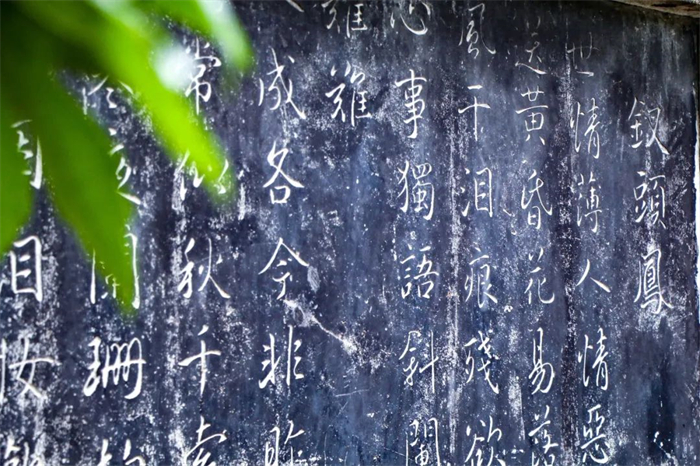 釵頭鳳
世情薄人情惡
送黃昏花易落
風干泪痕殘欲
心事獨語斜闌
難難
成各今非昨
常似秋千索
珊
泪妝